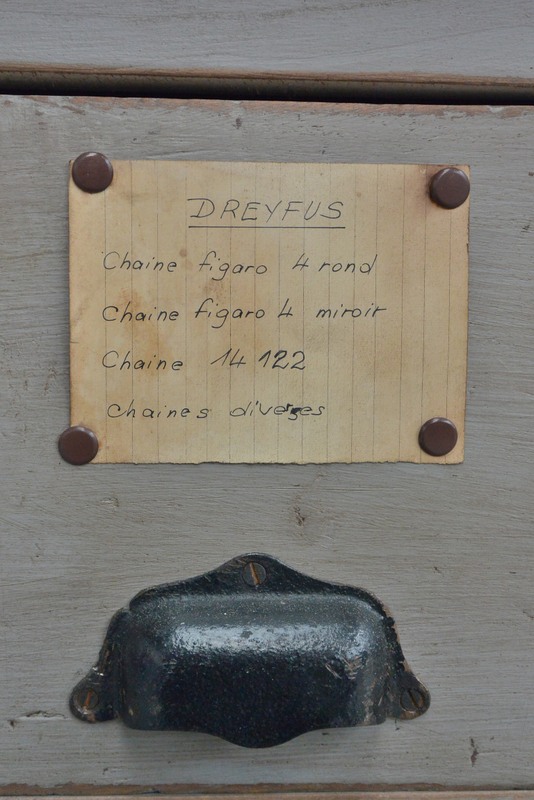 DREYFUS
Chaine figaro 4 rond
Chaine figaro 4 miroir
Chaine 14 122
Chaines diverses